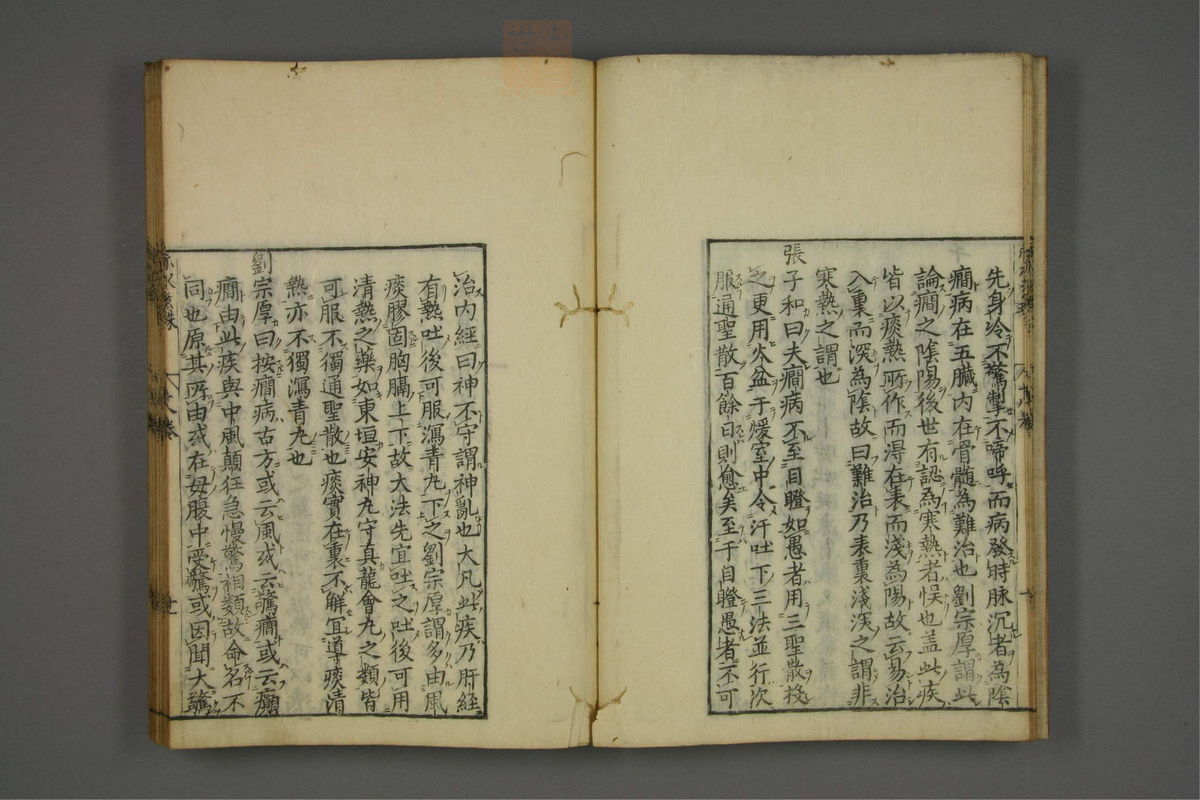 先身冷不驚掣不啼呼而病發時脉沉者為陰
癇病在五臟内在骨髓為難治也劉宗厚謂此
論癇之陰陽後世有認為寒熱者悮也盖此疾
皆以痰熱所作而得在表而淺為陽故云易治
入裏而深為陰故曰難治乃表裏淺深之謂非
寒熱之謂也
張子和曰夫癇病不至目瞪如愚者用三聖散投
之更用火盆于煖室中令汗吐下三法並行次
服通聖散百餘日則愈矣至于目瞪愚者不可
治内經曰神不守謂神亂也大凡此疾乃肝經
有熱吐後可服瀉青丸下之劉宗厚謂多由風
痰膠固胸膈上下故大法先宜吐之吐後可用
清熱之藥如東垣安神丸守真龍會丸之類皆
可服不獨通聖散也痰實在裏不解宜導痰清
熱亦不獨瀉青丸也
劉宗厚曰按癇病古方或云風或云驚癇或云癲
癇由此疾與中風顛狂急慢驚相類故命名不
同也原其所由或在母腹中受驚或因聞大驚